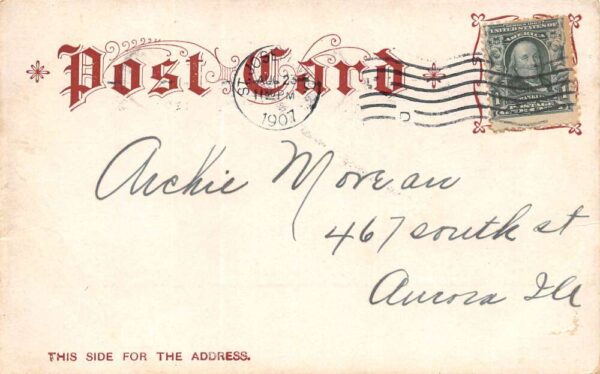 Post Card
1907
UNITED STATES OF AMERICA
Archie Moreau
467 south st
Aurora Ill
THIS SIDE FOR THE ADDRESS.